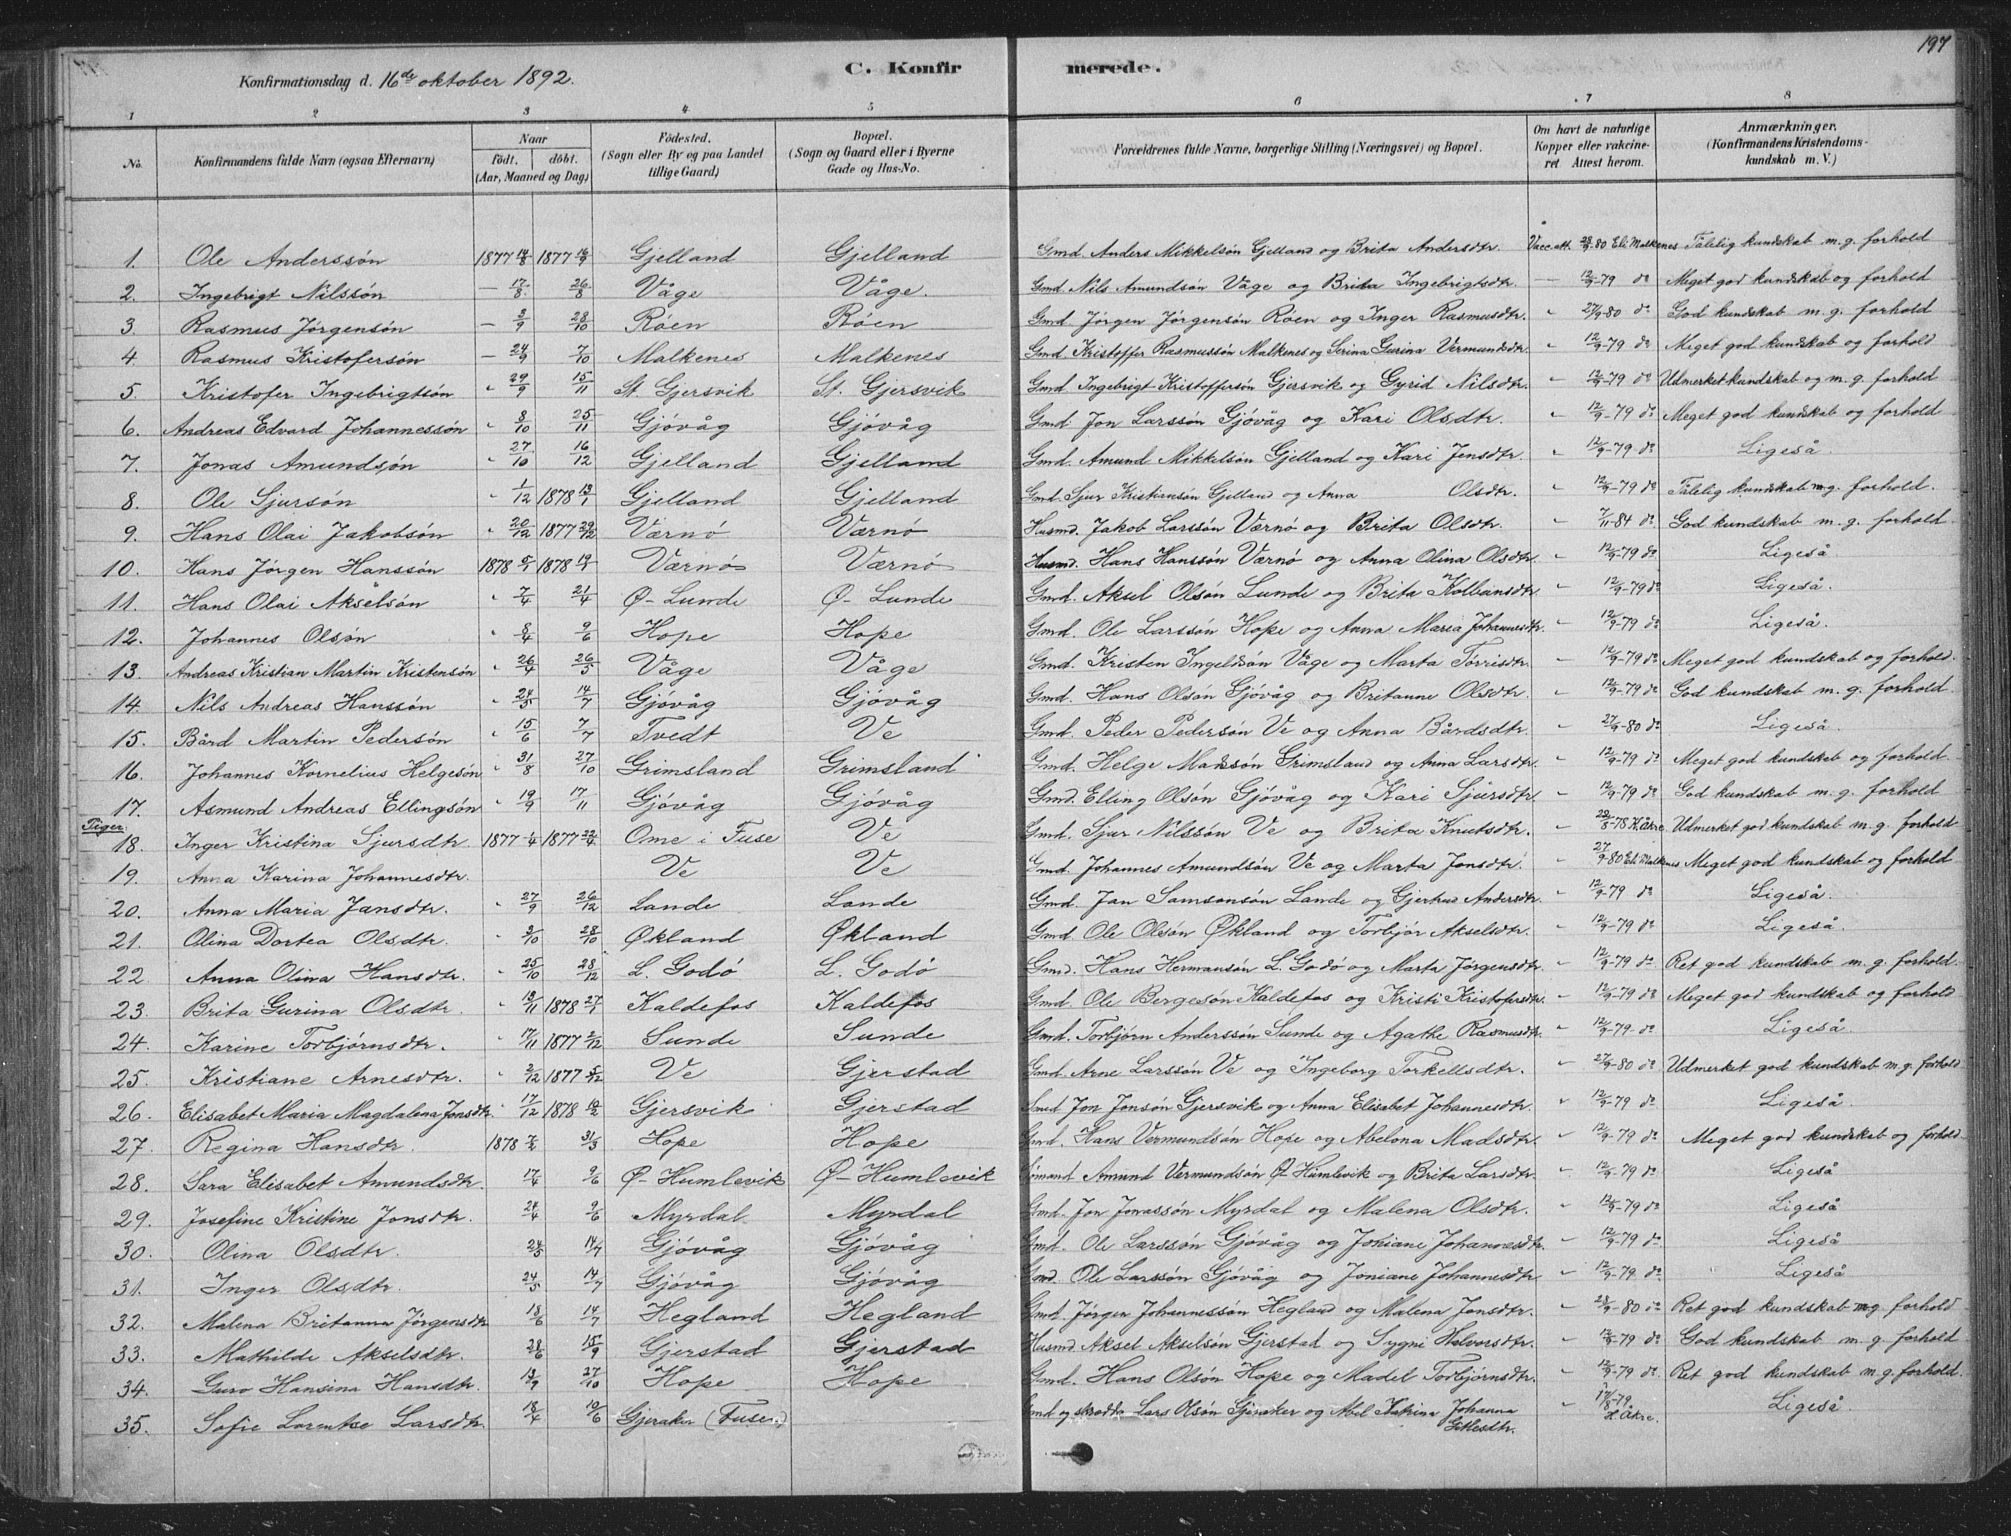 197
Konfirmationsdag d. 16de oktober 1892.
C. Konfirmerede.
1 2 3 4 5 6 7 8
No. Konfirmandens fulde Navn (ogsaa Efternavn) Naar født. døbt. (Aar, Maaned og Dag) Fødested. (Sogn eller By og paa Landet tillige Gaard) Bopæl. (Sogn og Gaard eller i Byerne Gade og Hus-No. Forældrenes fulde Navne, borgerlige Stilling (Næringsvei) og Bopæl. Om havt de naturlige Kopper eller vakcineret Attest herom. Anmærkninger. (Konfirmandens Kristendomskundskab m. V.)
1. Ole Anderssøn 1877 1877 Gjelland Gjelland Gmd. Anders Mikkelsøn Gjelland og Brita Andersdtr. Vacc. att. -80 Eli Malkenes Tålelig kundskab m. g. forhold
2. Ingebrigt Nilssøn — 17/8 26/8 Våge Våge. Gmd. Nils Amundsøn Våge og Brita Ingebrigtsdtr. — 12/9-79 do Meget god kundskab og forhold
3. Rasmus Jørgensøn — 3/9 28/10 Røen Røen Gmd. Jørgen Jørgensøn Røen og Inger Rasmusdtr. " 27/9-80 do God kundskab m. g. forhold
4. Rasmus Kristofersøn — 24/9 7/10 Malkenes Malkenes Gmd. Kristoffer Rasmussøn Malkenes og Serina Gurina Vermundsdtr. " 12/9-79 do Meget god kundskab og forhold
5. Kristofer Ingebrigtsøn " 29/9 15/11 St. Gjersvik St. Gjersvik Gmd. Ingebrigt Kristoffersøn Gjersvik og Gyrid Nilsdtr. " 12/9-79 do Udmerket kundskab og m. g. forhold
6. Andreas Edvard Johannessøn " 8/10 25/11 Gjøvåg Gjøvåg Gmd. Jon Larssøn Gjøvåg og Kari Olsdtr. " 12/9-79 do Meget god kundskab og forhold
7. Jonas Amundsøn " 27/10 16/12 Gjelland Gjelland Gmd. Amund Mikkelsøn Gjelland og Kari Jensdtr " 12/9-79 do Ligeså.
8. Ole Sjursøn " 1/12 1878 13/1 Gjelland Gjelland Gmd. Sjur Kristiansøn Gjelland og Anna Olsdtr. " 12/9-79 do Tålelig kundskab m. g. forhold.
9. Hans Olai Jakobsøn " 20/12 1877 29/12 Værnø Værnø Husmd. Jakob Larssøn Værnø og Brita Olsdtr. " 7/11-84 do God kundskab m. g. forhold
10. Hans Jørgen Hanssøn 1878 5/1 1878 Værnø Værnø Husmd. Hans Hanssøn Værnø og Anna Olina Olsdtr. " 12/9-79 do Ligeså.
11. Hans Olai Akselsøn " 7/4 21/4 Ø-Lunde Ø-Lunde Gmd. Aksel Olsøn Lunde og Brita Kolbansdtr. " 12/9-79 do Ligeså.
12. Johannes Olsøn " 8/4 9/6 Hope Hope Gmd. Ole Larssøn Hope og Anna Maria Johannesdtr. " 12/9-79 do Ligeså.
13. Andreas Kristian Martin Kristensøn " 26/4 26/5 Våge Våge Gmd. Kristen Våge og Marta Tørrisdtr. " 12/9-79 do Meget god kundskab og forhold.
14. Nils Andreas Hanssøn " 24/5 14/7 Gjøvåg Gjøvåg Gmd. Hans Olsøn Gjøvåg og Britanne Olsdtr. " 12/9-79 do God kundskab m. g. forhold
15. Bård Martin Pedersøn " 15/6 7/7 Tvedt Ve Gmd. Peder Pedersøn Ve og Anna Bårdsdtr. " 27/9-80 do Ligeså.
16. Johannes Kornelius Helgesøn " 31/8 27/10 Grimsland Grimsland Gmd. Helge Madssøn Grimsland og Anna Larsdtr " 12/9-79 do Meget god kundskab og forhold
17. Asmund Andreas Ellingsøn " 19/9 17/11 Gjøvåg Gjøvåg Gmd. Elling Olsøn Gjøvåg og Kari Sjursdtr " 12/9-79 do God kundskab m. g. forhold
Piger.
18. Inger Kristina Sjursdtr. 1877 1/4 1877 22/4 Ome i Fuse Ve Gmd. Sjur Nilssøn Ve og Brita Knutsdtr. " 22/8-78 H. Åkre. Udmerket god kundskab m. g. forhold
19. Anna Karina Johannesdtr. Ve Ve Gmd. Johannes Amundsøn Ve og Marta Jonsdtr. " 27/9-80 Eli Malkenes Meget god kundskab og forhold
20. Anna Maria Jansdtr. " 27/9 26/12 Lande Lande Gmd. Jan Samsonsøn Lande og Gjertrud Andersdtr " 12/9-79 do Ligeså.
21. Olina Dortea Olsdtr. " 3/10 28/10 Økland Økland Gmd. Ole Olsøn Økland og Torbjør Akselsdtr. " 12/9-79 do Ligeså.
22 Anna Olina Hansdtr. " 25/10 28/12 L. Godø L. Godø Gmd. Hans Hermansøn L. Godø og Marta Jørgensdtr. " 12/9-79 do Ret god kundskab m. g. forhold
23. Brita Gurina Olsdtr. " 13/11 1878 27/1 Kaldefos Kaldefos Gmd. Ole Bergesøn Kaldefos og Kristi Kristofersdtr " 12/9-79 do Meget god kundskab og forhold
24. Karine Torbjørnsdtr. " 17/11 1877 2/12 Sunde Sunde Gmd. Torbjørn Anderssøn Sunde og Agathe Rasmusdtr " 12/9-79 do Ligeså.
25. Kristiane Arnesdtr. " 2/12 1877 5/12 Ve Gjerstad Gmd. Arne Larssøn Ve og Ingeborg Torkellsdtr. " 27/9-80 do Udmerket god kundskab m. g. forhold
26. Elisabet Maria Magdalena Jonsdtr " 17/12 1878 10/2 Gjersvik Gjerstad Gmd Jon Jonsøn Gjersvik og Anna Elisabet Johannesdtr. " 12/9-79 do Ligeså.
27. Regina Hansdtr. 1878 7/2 31/3 Hope Hope Gmd. Hans Vermundsøn Hope og Abelona Madsdtr " 12/9-79 do Meget god kundskab og forhold.
28. Sara Elisabet Amundsdtr. 17/4 9/6 Ø-Humlevik Ø-Humlevik Sømand Amund Vermundsøn Ø-Humlevik og Brita Larsdtr. " 12/9-79 do Ligeså
29. Josefine Kristine Jonsdtr. 24/4 9/6 Myrdal Myrdal Gmd. Jon Jonassøn Myrdal og Malena Olsdtr. " 12/9-79 do Ligeså
30. Olina Olsdtr. 24/5 14/7 Gjøvåg Gjøvåg Gmd. Ole Larssøn Gjøvåg og Johannesdtr " 12/9-79 do Ligeså
31. Inger Olsdtr. 24/5 14/7 Gjøvåg Gjøvåg Gmd. Ole Larssøn Gjøvåg og Joniane Johannesdtr " 12/9-79 do Ligeså
32. Malena Britanna Jørgensdtr 18/6 14/7 Hegland Hegland Gmd. Jørgen Johannessøn Hegland og Malena Jonsdtr. " 28/9-80 do Ret god kundskab m. g. forhold
33. Mathilde Akselsdtr. 28/6 15/9 Gjerstad Gjerstad Husmd. Aksel Akselsøn Gjerstad og Sygni Halvorsdtr. " 12/9-79 do God kundskab m. g. forhold
34. Guro Hansina Hansdtr. 13/9 27/10 Hope Hope Gmd. Hans Olsøn Hope og Madel Torbjørnsdtr. " 12/9-79 do Ret god kundskab m. g. forhold.
35. Sofie Lorentse Larsdtr. 18/4 10/6 Gjeraker (Fuse) Gmd og Lars Olsøn Gjeraker og Abel Katrina Johanna Gitlesdtr. " 17/8-79 H. Åkre. Ligeså